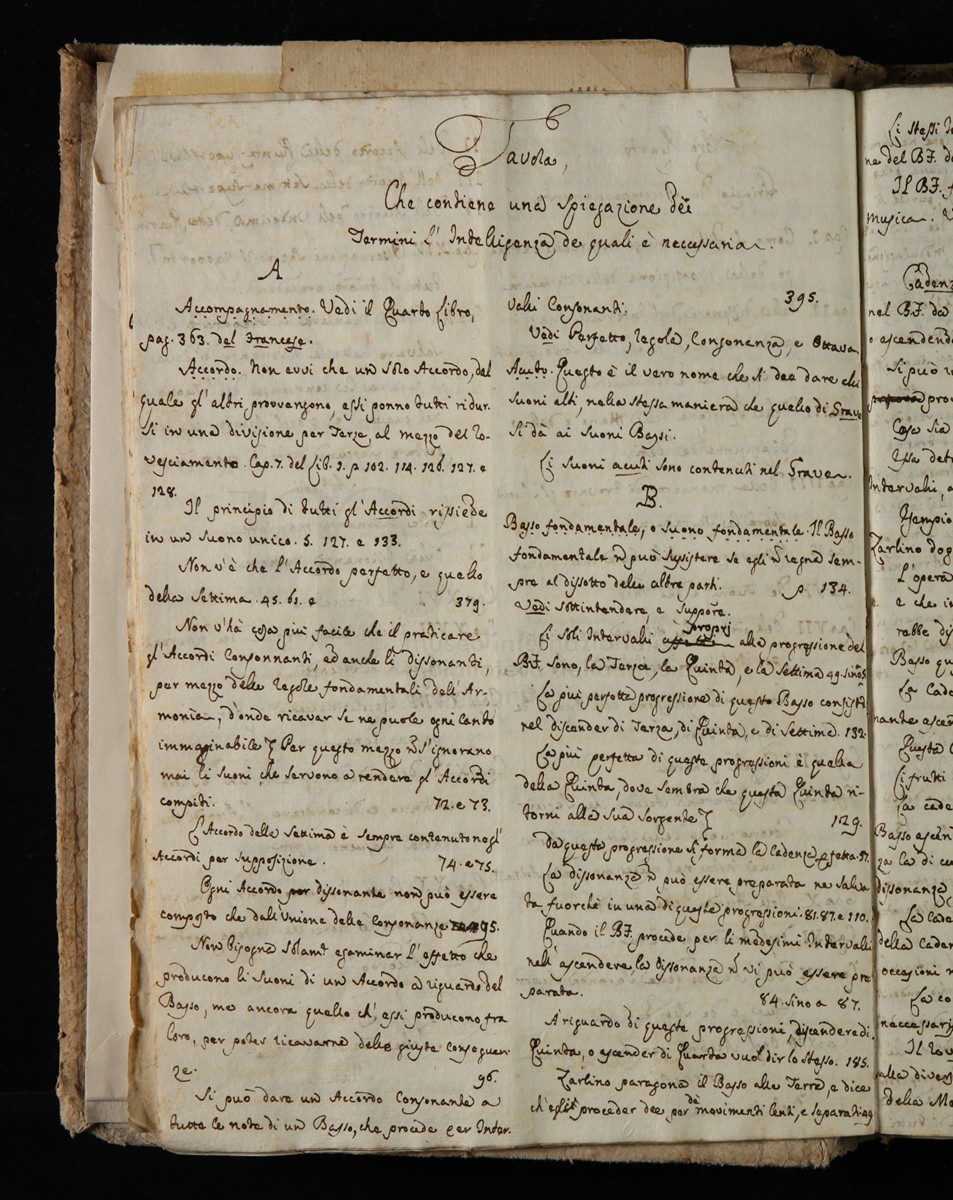 Tavola,
Che contiene una spiegazione dei
Termini l'Intelligenza de quali è necessaria.
A
Accompagnamento. Vedi il Quarto Libro,
pag. 363. del Francese.
Accordo. Non avvi che un solo Accordo, dal
quale gl'altri provvengono, essi ponno tutti ridur-
si in una divisione per Terze, al mezzo del ro-
vesciamento. Cap. 7. del Lib. 1. p. 102. 114. 126. 127. e
128.
Il principio di tutti gl'Accordi rissiede
in un suono unico. 5. 127. e 133.
Non v'è che l'Accordo perfetto, e quello
della Settima. 45. 61. e 379.
Non v'hà cosa più facile che il praticare
gl'Accordi Consonnanti, ed anche li dissonanti,
per mezzo delle regole fondamentali dell'Ar-
monia, d'onde ricavar se ne puole ogni canto
immaginabile. Per questo mezzo ñ s'ignorano
mai li suoni che servono a rendere gl'Accordi
compiti. 72. e 73.
L'Accordo della Settima è sempre contenuto negl'
Accordi per supposizione. 74. e 75.
Ogni Accordo dissonante non può essere
composto che dall'Unione delle Consonanze 95.
Non bisogna solamt esaminar l'effetto che
producono li Suoni di un Accordo a riguardo del
Basso, me ancora quello ch'essi producono fra
loro, per poter ricavarne delle giuste conseguen-
ze. 96.
Si può dare un Accordo Consonante a
tutte le note di un Basso, che procede per Inter-
valli Consonanti. 395.
Vedi Perfetto, regola, Consonenza, e Ottava
Acuto. Questo è il vero nome che si dee dare alli
Suoni alti, nella stessa maniera che quello di Grave
si dà ai Suoni Bassi.
Li Suoni acuti sono contenuti nel Grave.
B.
Basso fondamentale, o suono fondamentale. Il Basso
fondamentale ñ può sussistere se egli ñ regna sem-
pre al dissotto delle altre parti. p. 134.
Vedi sottintendere, e Suppore.
Li soli Intervalli proprj alla progressione del
BF, sono, la Terza, la Quinta, e la Settima 49. sino
La più perfetta progressione di questo Basso consiste
nel discender di Terza, di Quinta, e di Settima. 132.
La più perfetta di queste progressioni è quella
della Quinta, dove sembra che questa Quinta ri-
torni alla sua sorgente 129.
Da queste progressione si forma la Cadenza perfetta. 57.
La dissonanza ñ può essere preparata ne salva-
ta fuorchè in una di queste progressioni. 81. 87. e 110.
Quando il BF procede per li medesimi Intervalli
nell'ascendere la dissonanza ñ vi può essere pre
parata. 84. sino a 87.
A riguardo di queste progressioni, discendere di
Quinta, o ascender di Quarta vuol dir lo stesso. 185.
Zarlino paragona il Basso alla Terra, e dice
ch'egli proceder dee per de movimenti lenti, e separati 49
Li stessi
ne del BF. d
Il BF.
musica.
Cadenz
nel B.F. da
o ascendend
Si può
pro
Cosa sia
Intervalli,
Esempio
Zarlino dog
L'opera
e che in
Basso qu
La Cade
nante ascen
Questa
Li frutti
La cade
Basso
za la di cu
dissonanza
La Cade
della Caden
occasioni
La co
neccessari
Il ro
alla diver
della Mo